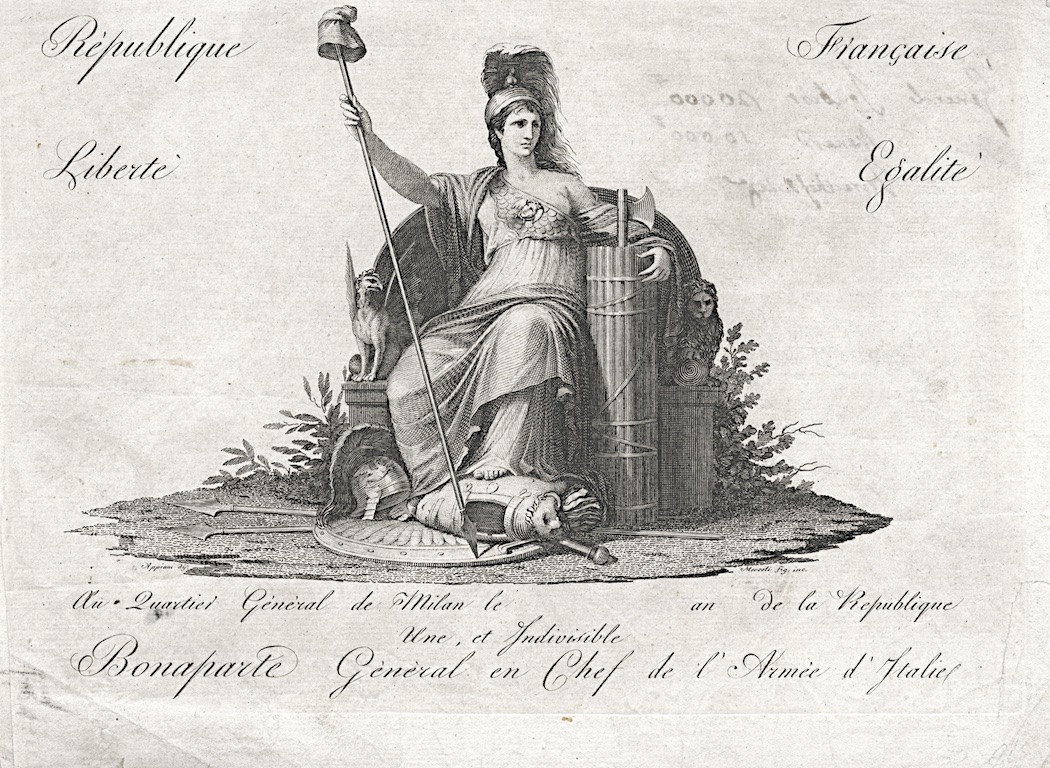 République Française
Liberté Egalité
Appiani
Au Quartier Général de Milan le an de la Republique
Une, et Indivisible
Bonaparte Général en Chef de l'Armée d'Italie